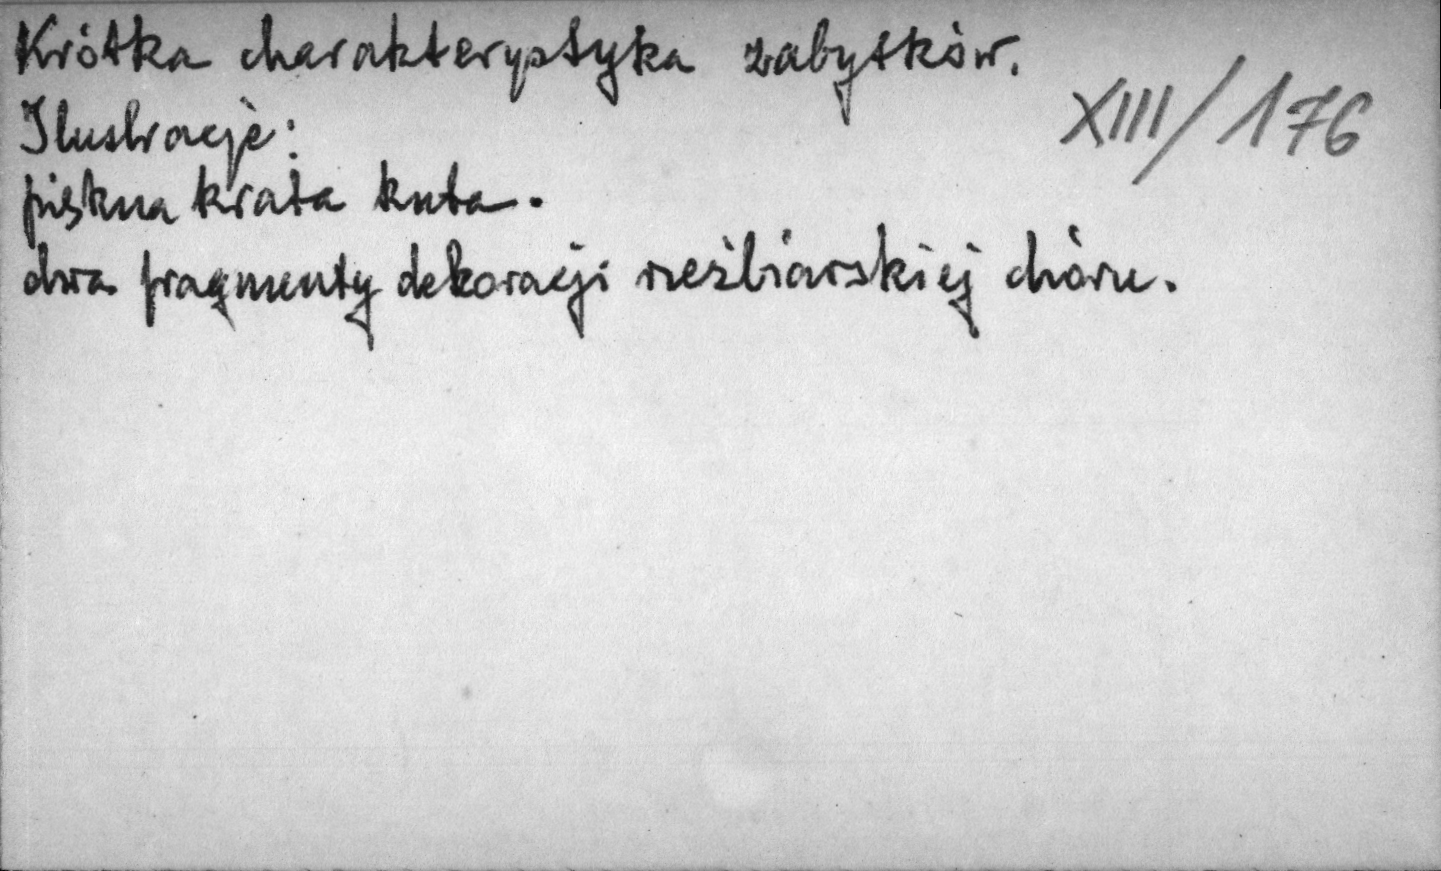 Krótka charakterystyka zabytków.
XIII/176
Ilustracje:
piękna krata kuta.
dwa fragmenty dekoracji rzeźbiarskiej chóru.